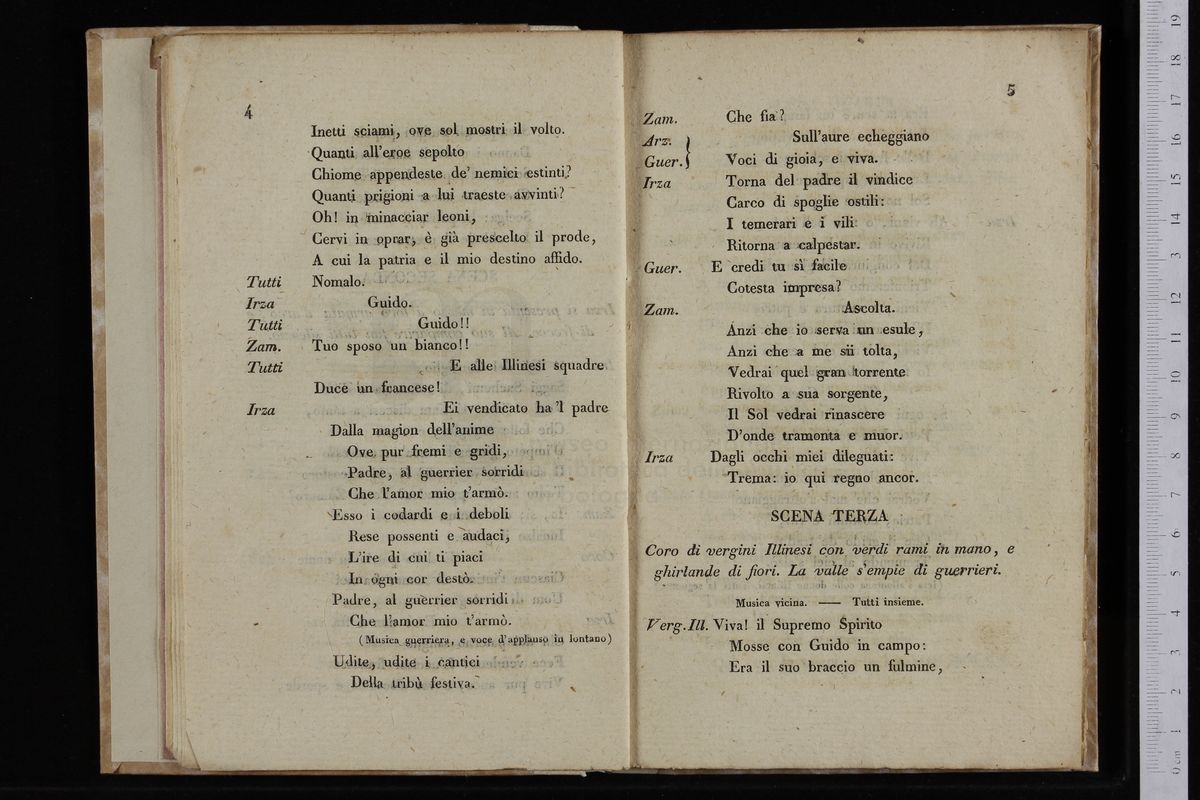 4
Inetti sciami, ove sol mostri il volto.
Quanti all'eroe sepolto
Chiome appendeste de' nemici estinti?
Quanti prigioni a lui traeste avvinti?
Oh! in minacciar leoni,
Cervi in oprar, è già prescelto il prode,
A cui la patria e il mio destino affido.
Tutti Nomalo.
Irza Guido.
Tutti Guido!!
Zam. Tuo sposo un bianco!!
Tutti E alle Illinesi squadre
Duce un francese!
Irza Ei vendicato ha 'l padre
Dalla magion dell'anime
Ove pur fremi e gridi,
Padre, al guerrier sorridi
Che l'amor mio t'armò.
Esso i codardi e i deboli
Rese possenti e audaci,
L'ire di cui ti piaci
In ogni cor destò.
Padre, al guerrier sorridi
Che l'amor mio t'armò.
(Musica guerriera, e voce d'applauso in lontano)
Udite, udite i cantici
Della tribù festiva.
5
Zam. Che fia?
Arz. } Sull'aure echeggiano
Guer. } Voci di gioia, e viva.
Irza Torna del padre il vindice
Carco di spoglie ostili:
I temerari e i vili
Ritorna a calpestar.
Guer. E credi tu sì facile
Cotesta impresa?
Zam. Ascolta.
Anzi che io serva un esule,
Anzi che a me sii tolta,
Vedrai quel gran torrente
Rivolto a sua sorgente,
Il Sol vedrai rinascere
D'onde tramonta e muor.
Irza Dagli occhi miei dileguati:
Trema: io qui regno ancor.
SCENA TERZA
Coro di vergini Illinesi con verdi rami in mano, e
ghirlande di fiori. La valle s'empie di guerrieri.
Musica vicina. —— Tutti insieme.
Verg. Ill. Viva! il Supremo Spirito
Mosse con Guido in campo:
Era il suo braccio un fulmine,
0 cm 1 2 3 4 5 6 7 8 9 10 11 12 13 14 15 16 17 18 19